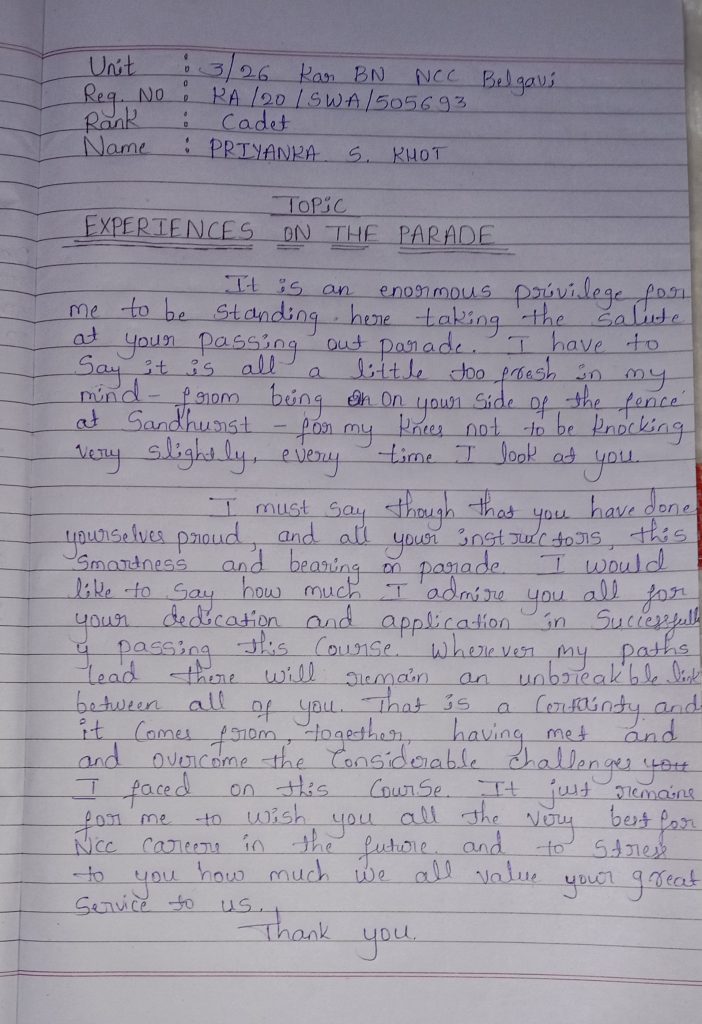 Unit : 3/26 Kar BN NCC Belgavi
Reg. No : KA/20/SWA/505693
Rank : Cadet
Name : PRIYANKA. S. KHOT
TOPIC
EXPERIENCES ON THE PARADE
It is an enormous privilege for
me to be standing here taking the salute
at your passing out parade. I have to
Say it is all a little too fresh in my
mind - from being on your side of the fence
at Sandhurst - for my knees not to be knocking
very slightly, every time I look at you.
I must say though that you have done
yourselves proud, and all your instructors, this
smartness and bearing on parade. I would
like to say how much I admire you all for
your dedication and application in Successfull
y passing this Course. Wherever my paths
lead there will remain an unbreakble link
between all of you. That is a Certainty and
it comes from, together, having met and
and overcome the Considrable challenges you
I faced on this Course. It just remains
for me to wish you all the very best for
NCC careers in the future. and to Stress
to you how much we all value your great
Service to us.
Thank you.